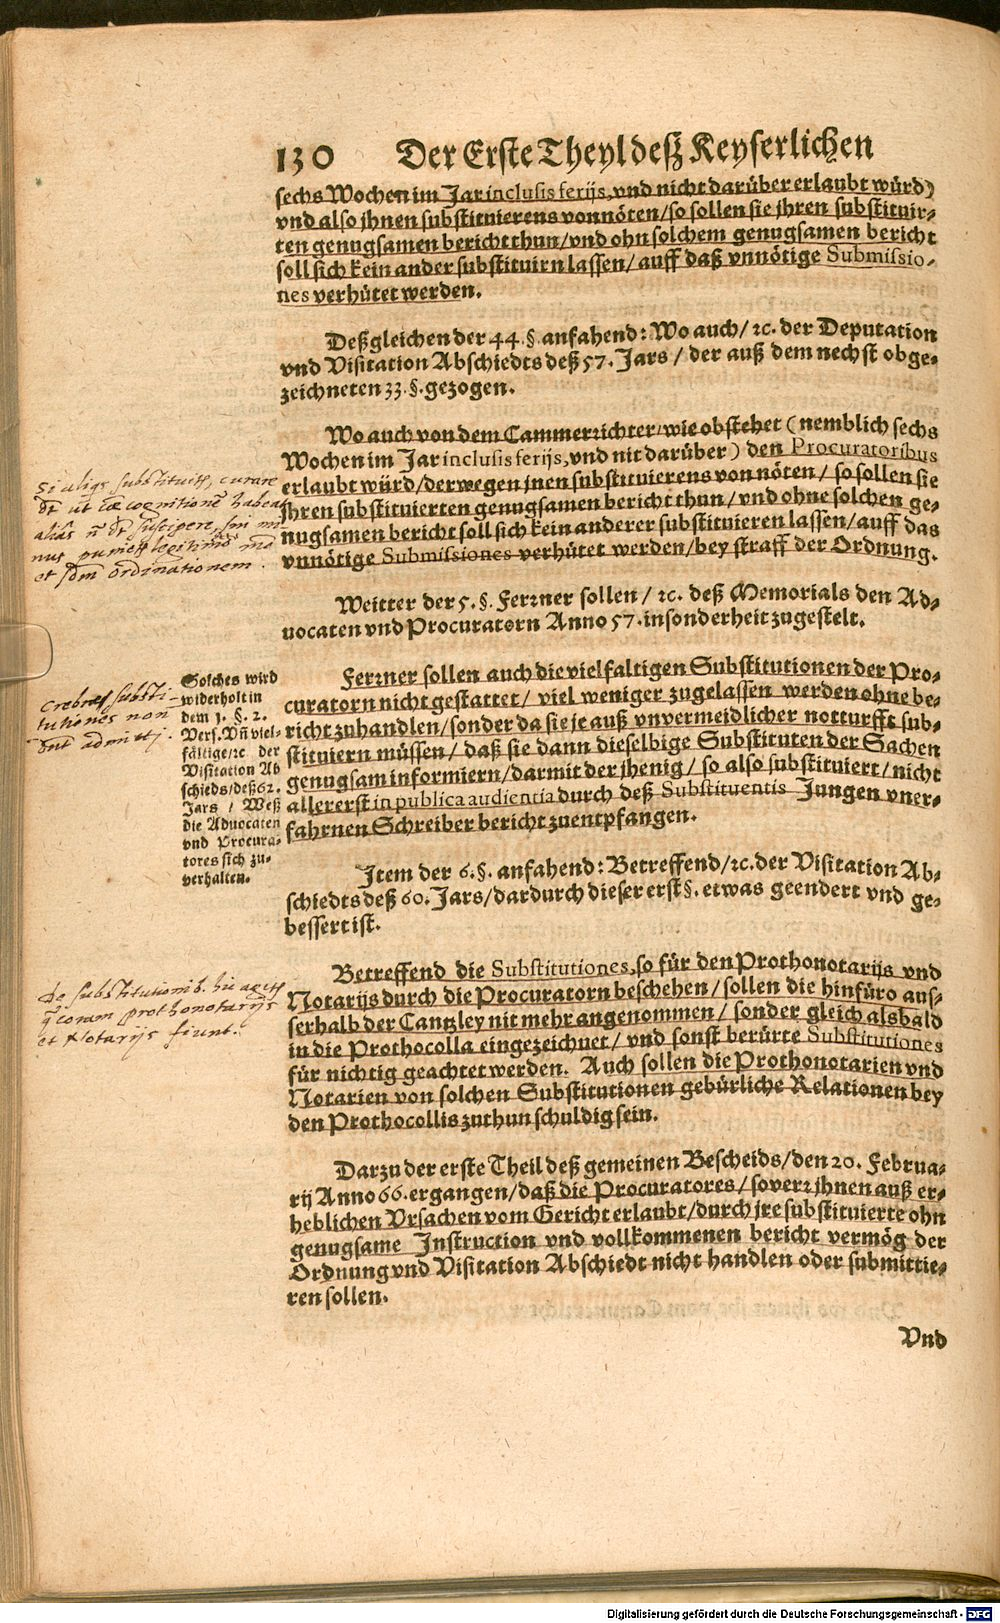 130 Der Erste Theyl deß Keyserlichen
sechs Wochen im Jar inclusis ferijs, vnd nicht darüber erlaubt würd)
vnd also jhnen substituierens vonnöten/so sollen sie jhren substituir-
ten genugsamen bericht thun/vnd ohn solchem genugsamen bericht
soll sich kein ander substituirn lassen/auff daß vnnötige Submissio-
nes verhütet werden.
Deßgleichen der 44.§. anfahend: Wo auch/ꝛc. der Deputation
vnd Visitation Abschiedts deß 57. Jars/der auß dem nechst obge-
zeichneten 33.§. gezogen.
Wo auch von dem Cammerrichter wie obstehet (nemblich sechs
Wochen im Jar inclusis ferijs, vnd nit darüber) den Procuratoribus
erlaubt würd/derwegen jnen substituierens von nöten/so sollen sie
jhren substituierten genugsamen bericht thun/vnd ohne solchen ge-
nugsamen bericht soll sich kein anderer substituieren lassen/auff das
vnnötige Submissiones verhütet werden/bey straff der Ordnung.
habea
et ordinationem.
Weitter der 5.§. Ferꝛner sollen/ꝛc. deß Memorials den Ad-
uocaten vnd Procuratorn Anno 57. insonderheit zugestelt.
Ferꝛner sollen auch die vielfaltigen Substitutionen der Pro-
curatorn nicht gestattet/viel weniger zugelassen werden ohne be-
richt zuhandlen/sonder da sie je auß vnvermeidlicher notturfft sub-
stituiern müssen/daß sie dann dieselbige Substituten der Sachen
genugsam informiern/darmit der jhenig/so also substituiert/nicht
allererst in publica audientia durch deß Substituentis Jungen vner-
fahrnen Schreiber bericht zuentpfangen.
Solches wird
widerholt in
dem 1. §. 2.
Vers. Vñ viel-
fältige/ꝛc der
Visitation Ab
schieds/deß 62.
Jars/Weß
die Aduocaten
vnd Procura-
tores sich zu-
verhalten.
substi-
tutiones non
Item der 6.§. anfahend: Betreffend/ꝛc. der Visitation Ab-
schiedts deß 60. Jars/dardurch dieser erst §. etwas geendert vnd ge-
bessert ist.
Betreffend die Substitutiones, so für den Prothonotarijs vnd
Notarijs durch die Procuratorn beschehen/sollen die hinfüro aus-
serhalb der Cantzley nit mehr angenommen/sonder gleich alsbald
in die Prothocolla eingezeichnet/vnd sonst berürte Substitutiones
für nichtig geachtet werden. Auch sollen die Prothonotarien vnd
Notarien von solchen Substitutionen gebürliche Relationen bey
den Prothocollis zuthun schuldig sein.
de substitutionib. hic
coram prothonotarijs
et Notarijs fiunt.
Darzu der erste Theil deß gemeinen Bescheids/den 20. Februa-
rij Anno 66. ergangen/daß die Procuratores/soverꝛ jhnen auß er-
heblichen Vrsachen vom Gericht erlaubt/durch jre substituierte ohn
genugsame Instruction vnd vollkommenen bericht vermög der
Ordnung vnd Visitation Abschiedt nicht handlen oder submittie-
ren sollen.
Vnd
Digitalisierung gefördert durch die Deutsche Forschungsgemeinschaft - DFG